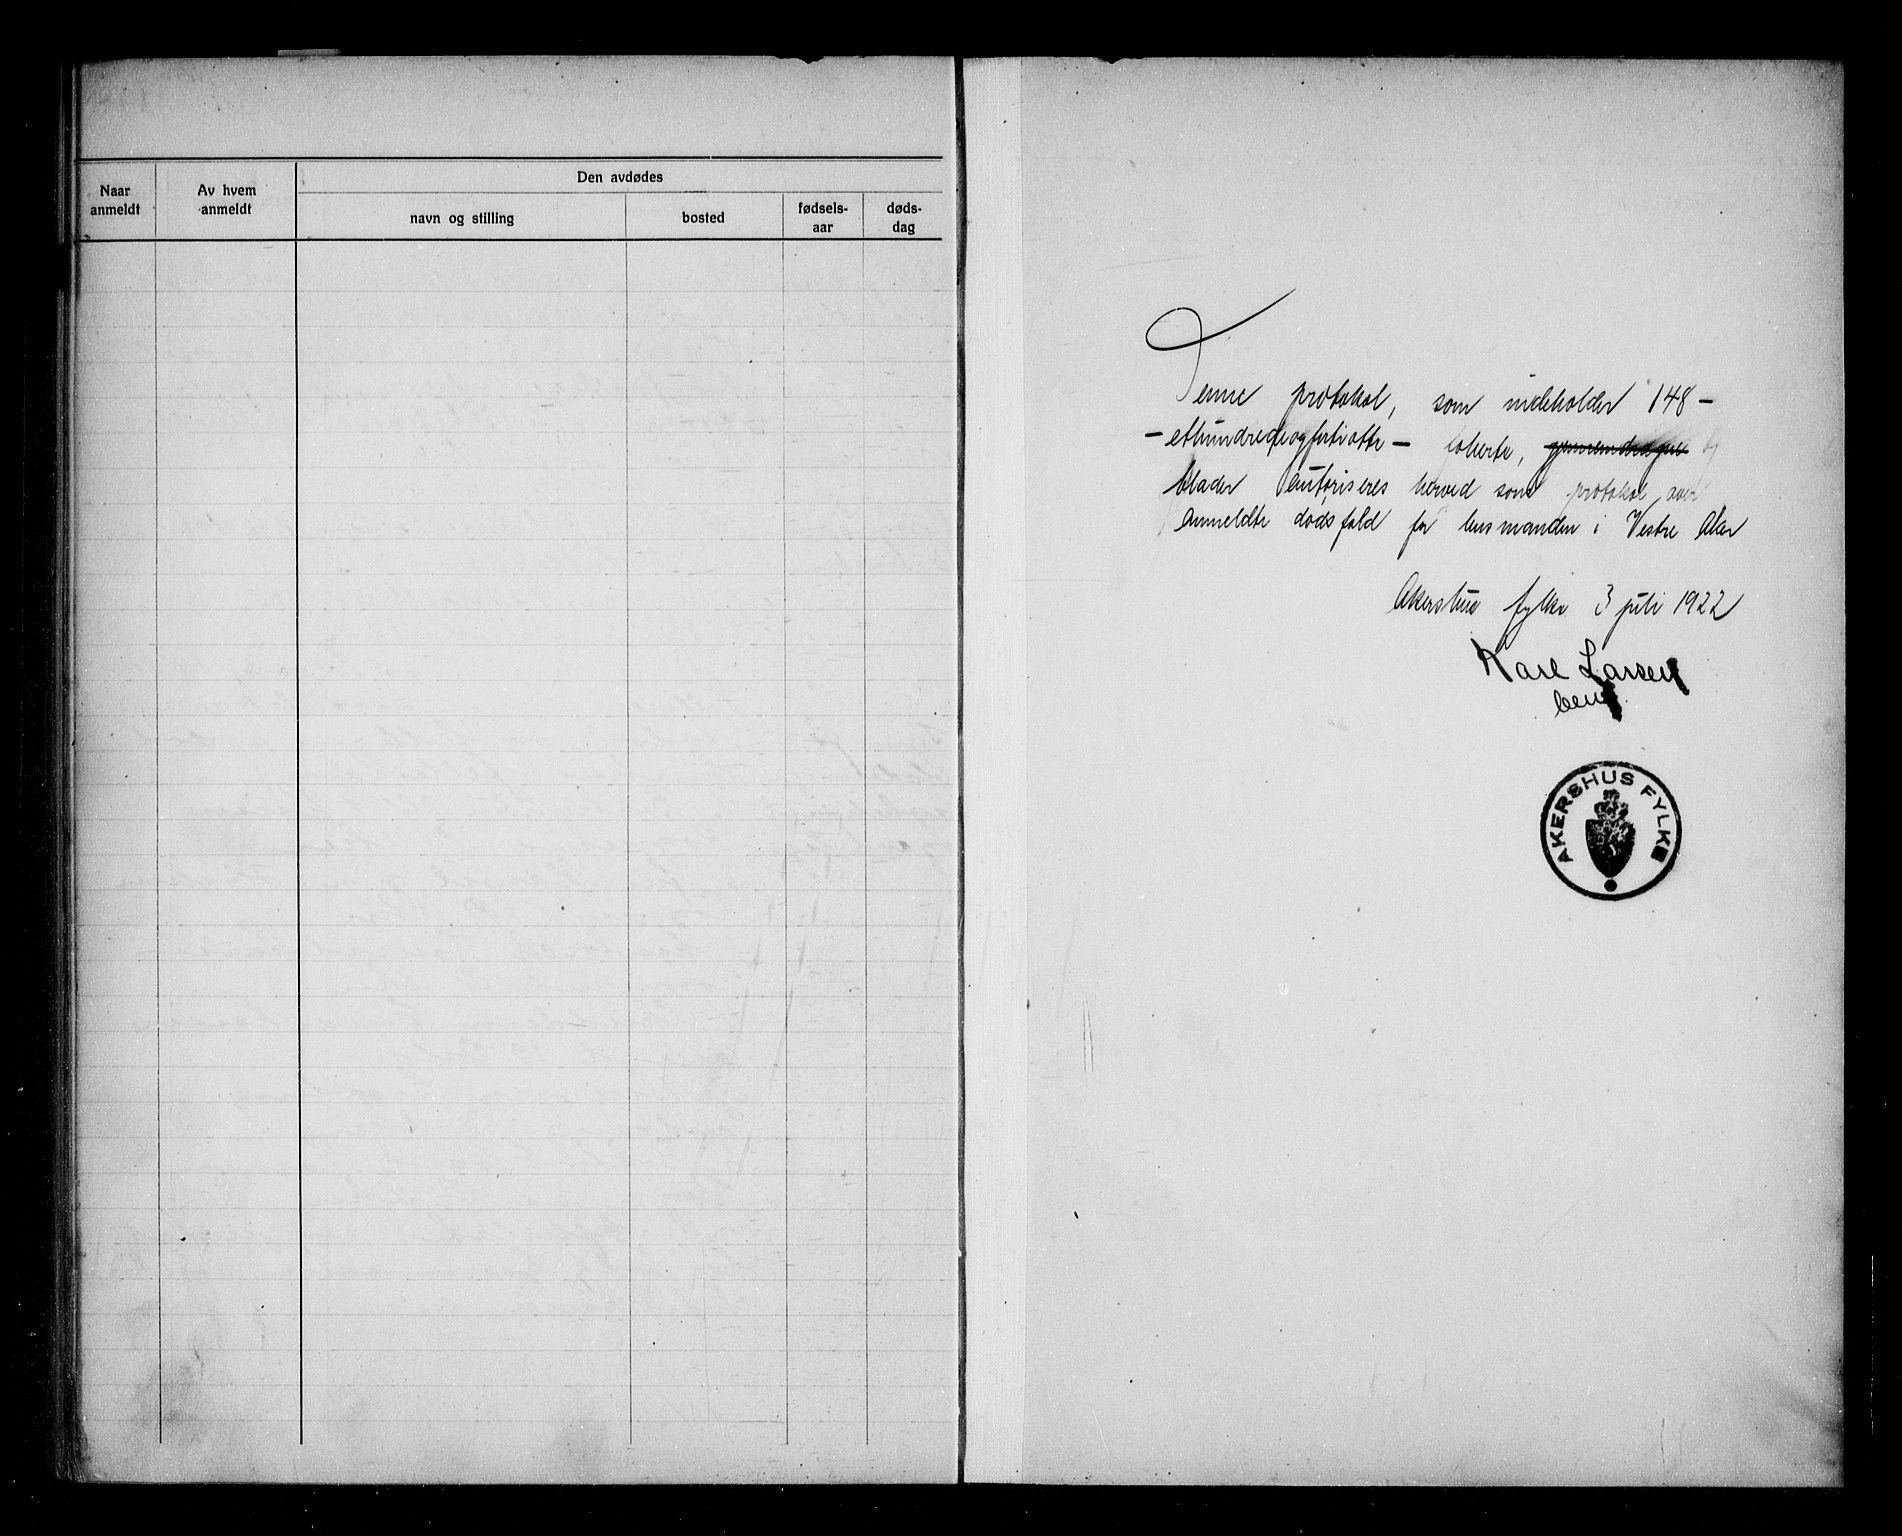 Naar anmeldt
Av hvem anmeldt
Den avdødes
navn og stilling
bosted
fødsels-aar
døds-dag
Denne protokol, som indeholder 148 –
– ethundredeogfortiotte – folierte, gjennemdragne og
blader autoriseres herved som protokol over
anmeldte dødsfald for lensmanden i Vestre Aker
Akershus fylke 3 juli 1922
Karl Larsen
bem.
AKERSHUS FYLKE